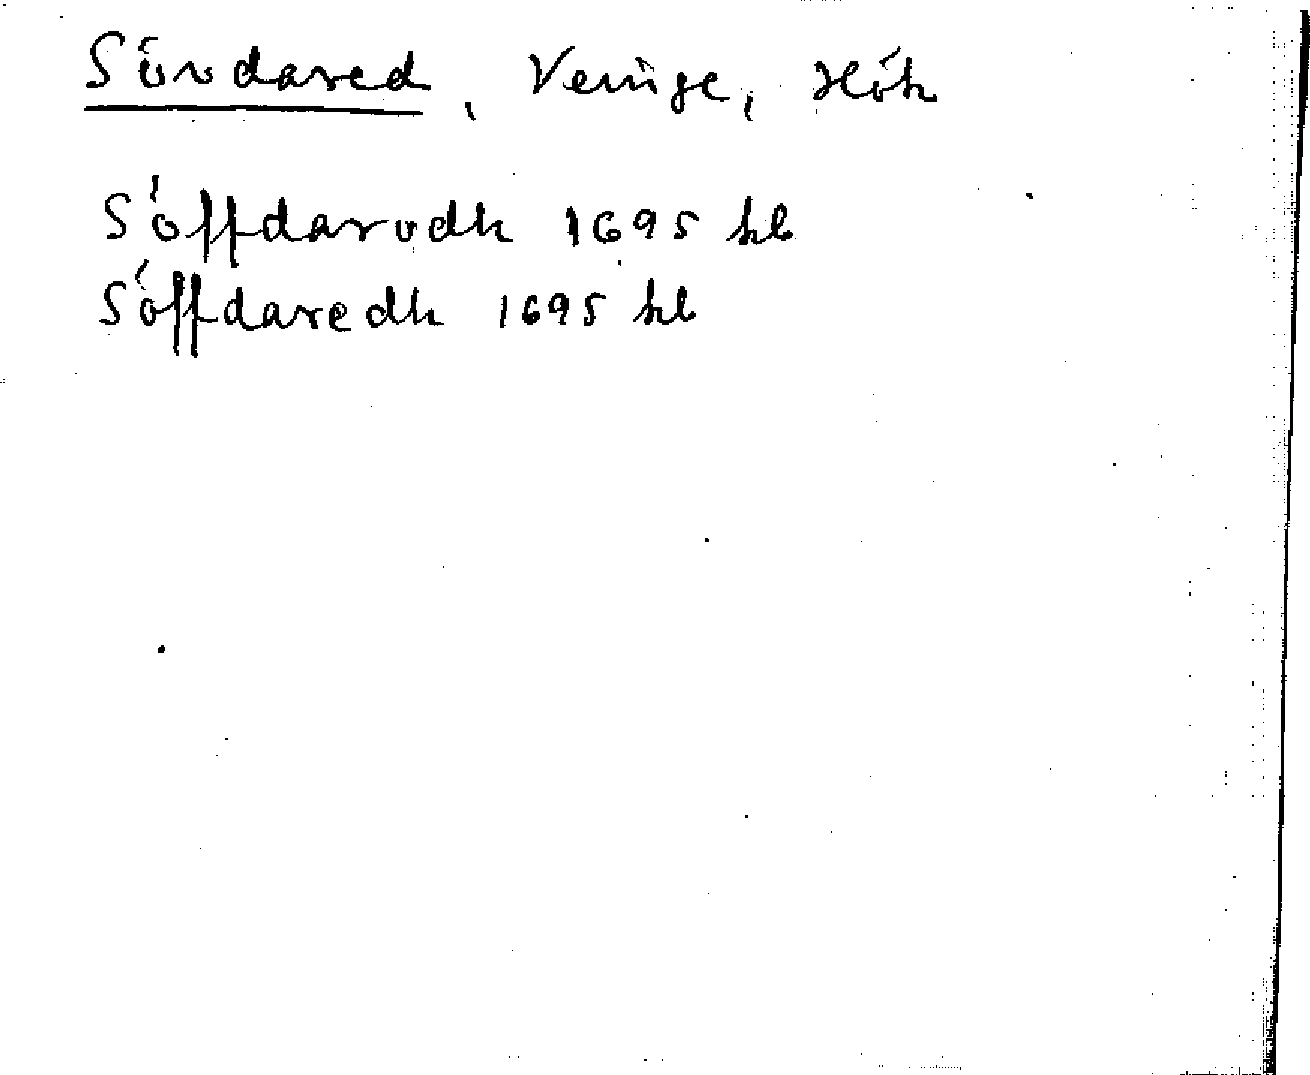 Sövdared, Veinge, Hök
Söffdarödh 1695 hb
Söffdaredh 1695 hb